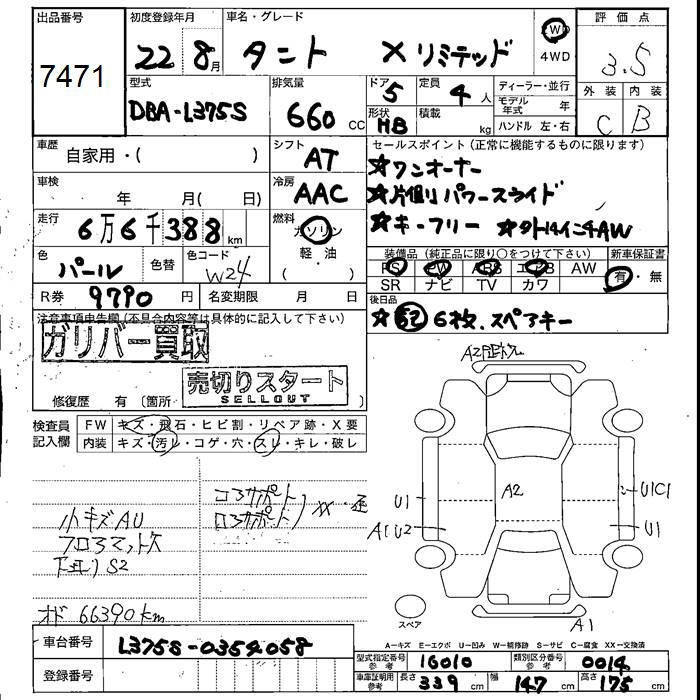 出品番号
7471
初度登録年月
22 8月
車名・グレード
タント Xリミテッド
2WD
4WD
評価点
3.5
外装 内装
C B
型式
DBA-L375S
排気量
660 CC
ドア
5
形状
HB
定員
4人
積載
kg
ディーラー・並行
モデル年式 年
ハンドル 左・右
車歴
自家用・( )
シフト
AT
車検
年 月( 日)
冷房
AAC
走行
6万6千388km
燃料
ガソリン
軽・油
( )
色
パール
色替
色コード
W24
R券
9790円
名変期限 月 日
セールスポイント(正常に機能するものに限ります)
☆ワンオーナー
☆片側パワースライド
☆キーフリー ☆社外14インチAW
装備品(純正品に限り○をつけて下さい)
PS PW ABS エアB AW
SR ナビ TV カワ
新車保証書
有・無
後日品
☆記 6枚、スペアキー
注意事項申告欄(不具合内容等は具体的に記入して下さい)
ガリバー買取
売切りスタート
SELLOUT
修復歴 有 (箇所 )
検査員記入欄
FW キズ・飛石・ヒビ割・リペア跡・X要
内装 キズ・汚レ・コゲ・穴・スレ・キレ・破レ
小キズAU
フロアマット欠
下廻りS2
オド 66390km
コアサポート
XX
A2
A2
U1
A1U2
U1C1
U1
A1
スペア
A=キズ E=エクボ U=凹み W=補修跡 S=サビ C=腐食 XX=交換済
車台番号
L375S-0354058
登録番号
型式指定番号 参考
16010
類別区分番号 参考
0014
車庫証明用 参考
長さ 339cm
幅 147cm
高さ 175cm